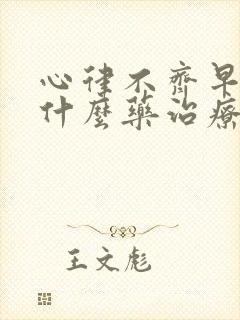 心律不齊早
什麼藥治療
王文彪